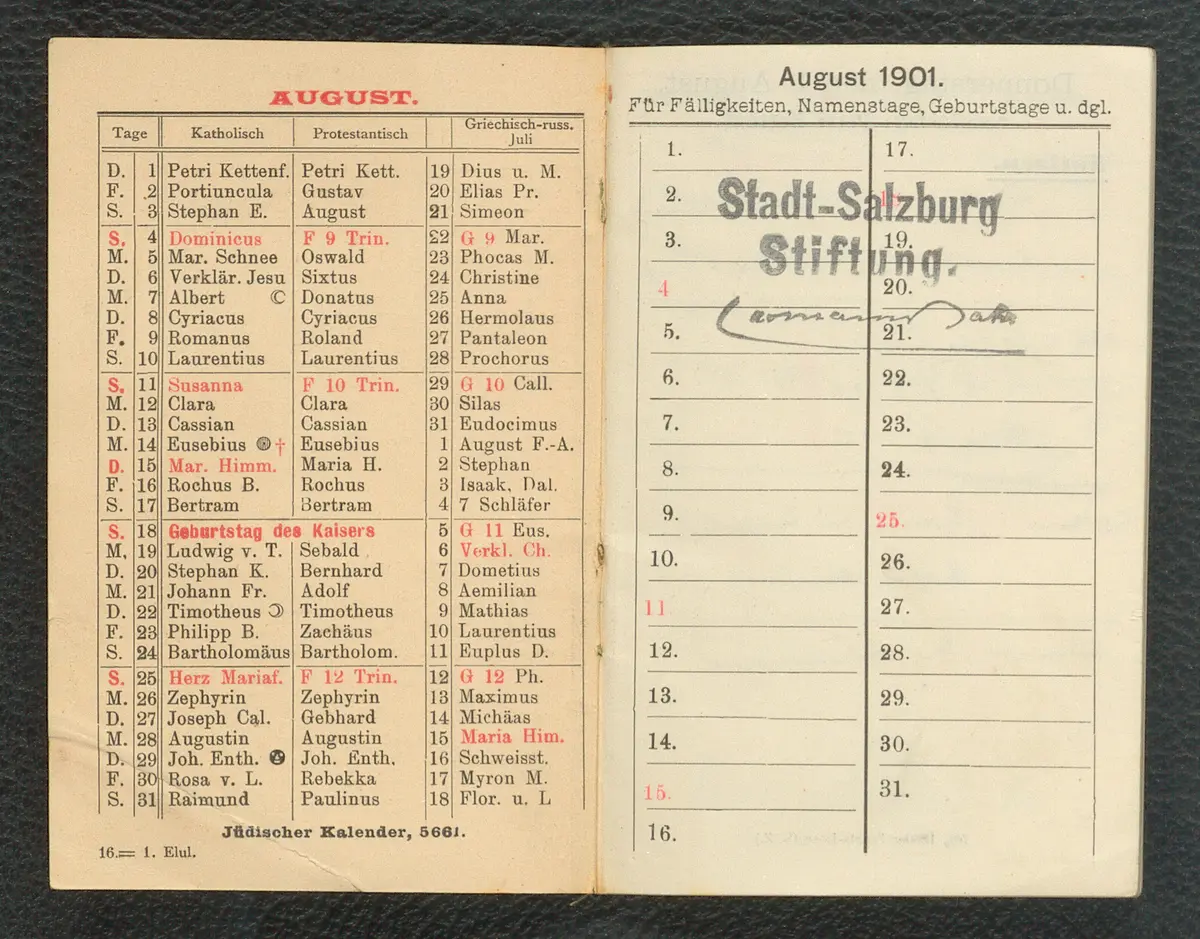 AUGUST.
Tage Katholisch Protestantisch Griechisch-russ. Juli
D. 1 Petri Kettenf. Petri Kett. 19 Dius u. M.
F. 2 Portiuncula Gustav 20 Elias Pr.
S. 3 Stephan E. August 21 Simeon
S. 4 Dominicus F 9 Trin. 22 G 9 Mar.
M. 5 Mar. Schnee Oswald 23 Phocas M.
D. 6 Verklär. Jesu Sixtus 24 Christine
M. 7 Albert ☾ Donatus 25 Anna
D. 8 Cyriacus Cyriacus 26 Hermolaus
F. 9 Romanus Roland 27 Pantaleon
S. 10 Laurentius Laurentius 28 Prochorus
S. 11 Susanna F 10 Trin. 29 G 10 Call.
M. 12 Clara Clara 30 Silas
D. 13 Cassian Cassian 31 Eudocimus
M. 14 Eusebius † Eusebius 1 August F.-A.
D. 15 Mar. Himm. Maria H. 2 Stephan
F. 16 Rochus B. Rochus 3 Isaak, Dal.
S. 17 Bertram Bertram 4 7 Schläfer
S. 18 Geburtstag des Kaisers 5 G 11 Eus.
M. 19 Ludwig v. T. Sebald 6 Verkl. Ch.
D. 20 Stephan K. Bernhard 7 Dometius
M. 21 Johann Fr. Adolf 8 Aemilian
D. 22 Timotheus ☽ Timotheus 9 Mathias
F. 23 Philipp B. Zachäus 10 Laurentius
S. 24 Bartholomäus Bartholom. 11 Euplus D.
S. 25 Herz Mariaf. F 12 Trin. 12 G 12 Ph.
M. 26 Zephyrin Zephyrin 13 Maximus
D. 27 Joseph Cal. Gebhard 14 Michäas
M. 28 Augustin Augustin 15 Maria Him.
D. 29 Joh. Enth. Joh. Enth. 16 Schweisst.
F. 30 Rosa v. L. Rebekka 17 Myron M.
S. 31 Raimund Paulinus 18 Flor. u. L
Jüdischer Kalender, 5661.
16.= 1. Elul.
August 1901.
Für Fälligkeiten, Namenstage, Geburtstage u. dgl.
1.
2.
3.
4
5.
6.
7.
8.
9.
10.
11
12.
13.
14.
15.
16.
17.
18.
19.
20.
21.
22.
23.
24.
25.
26.
27.
28.
29.
30.
31.
Stadt-Salzburg
Stiftung.